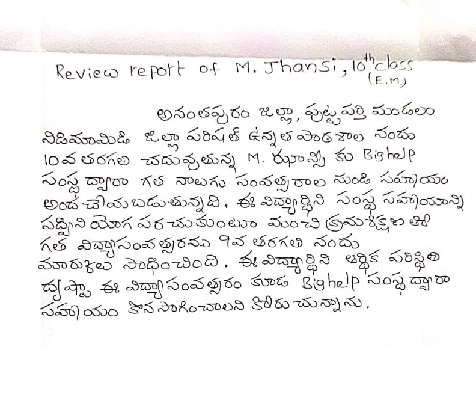 Review report of M. Jhansi, 10th class
(E.M)
అనంతపురం జిల్లా, పుట్టపర్తి మండలం
నిడిమామిడి జిల్లా పరిషత్ ఉన్నత పాఠశాల నందు
10వ తరగతి చదువుతున్న M. ఝాన్సీ కు Bighelp
సంస్థ ద్వారా గత నాలుగు సంవత్సరాల నుండి సహాయం
అంద చేయబడుతున్నది. ఈ విద్యార్థిని సంస్థ సహాయాన్ని
సద్వినియోగ పరచుకుంటూ మంచి క్రమశిక్షణ తో
గత విద్యాసంవత్సరము 9వ తరగతి నందు
మార్కులు సాధించింది. ఈ విద్యార్థిని ఆర్థిక పరిస్థితి
దృష్ట్యా ఈ విద్యాసంవత్సరం కూడ Bighelp సంస్థ ద్వారా
సహాయం కొనసాగించాలని కోరుచున్నాను.